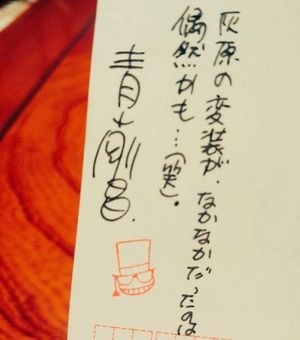 灰原の変装が、なかなかだったのは
偶然かも…(笑)。
青山剛昌